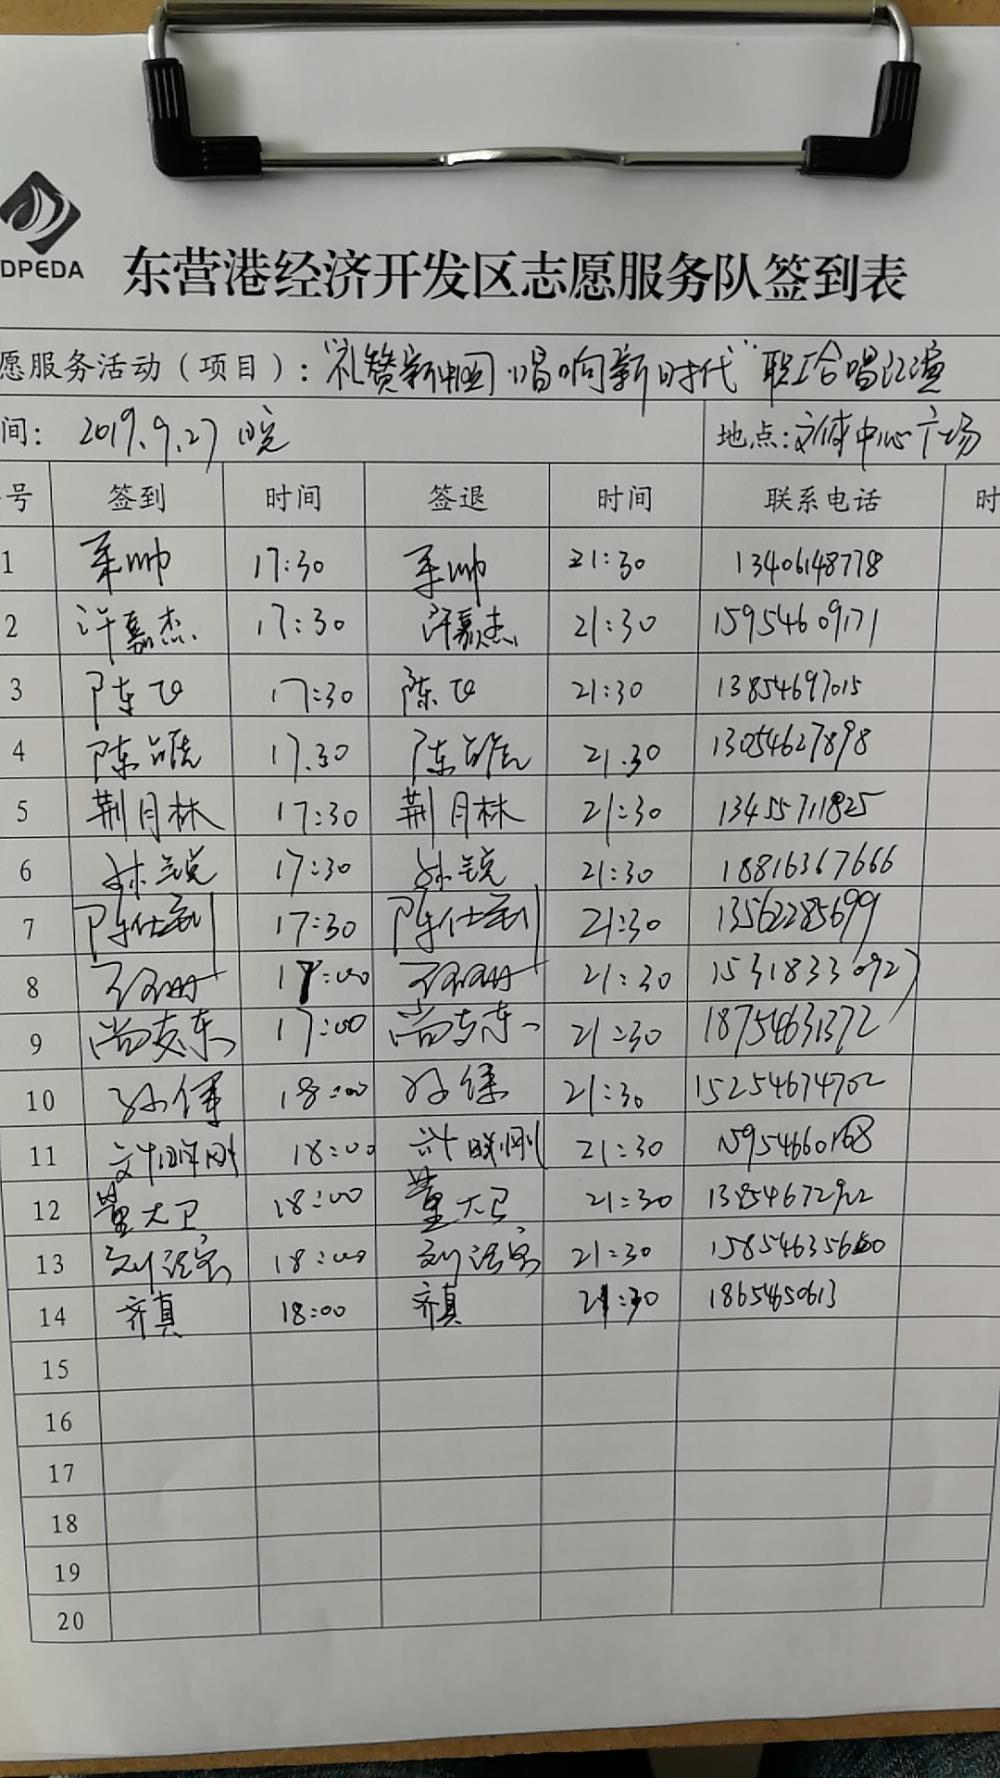 DPEDA
东营港经济开发区志愿服务队签到表
愿服务活动（项目）：“礼赞新中国 唱响新时代”职工合唱汇演
间： 2019.9.27 晚 地点：文体中心广场
号 签到 时间 签退 时间 联系电话 时
1 帅 17:30 帅 21:30 13406148778
2 许嘉杰 17:30 许嘉杰 21:30 15954609171
3 陈飞 17:30 陈飞 21:30 13854697015
4 陈 17.30 陈 21.30 13054627898
5 荆月林 17:30 荆月林 21:30 13455711825
6 孙锐 17:30 孙锐 21:30 18816367666
7 陈仕 17:30 陈仕 21:30 13562285699
8 17:00 21:30 15318330927
9 尚 东 17:00 尚 东 21:30 18754631372
10 孙 18:00 孙 21:30 15254674702
11 18:00 21:30 15954660168
12 董大卫 18:00 董大卫 21:30 13854672922
13 刘 18:00 刘 21:30
14 齐真 18:00 齐真 21:30 1865460613
15
16
17
18
19
20